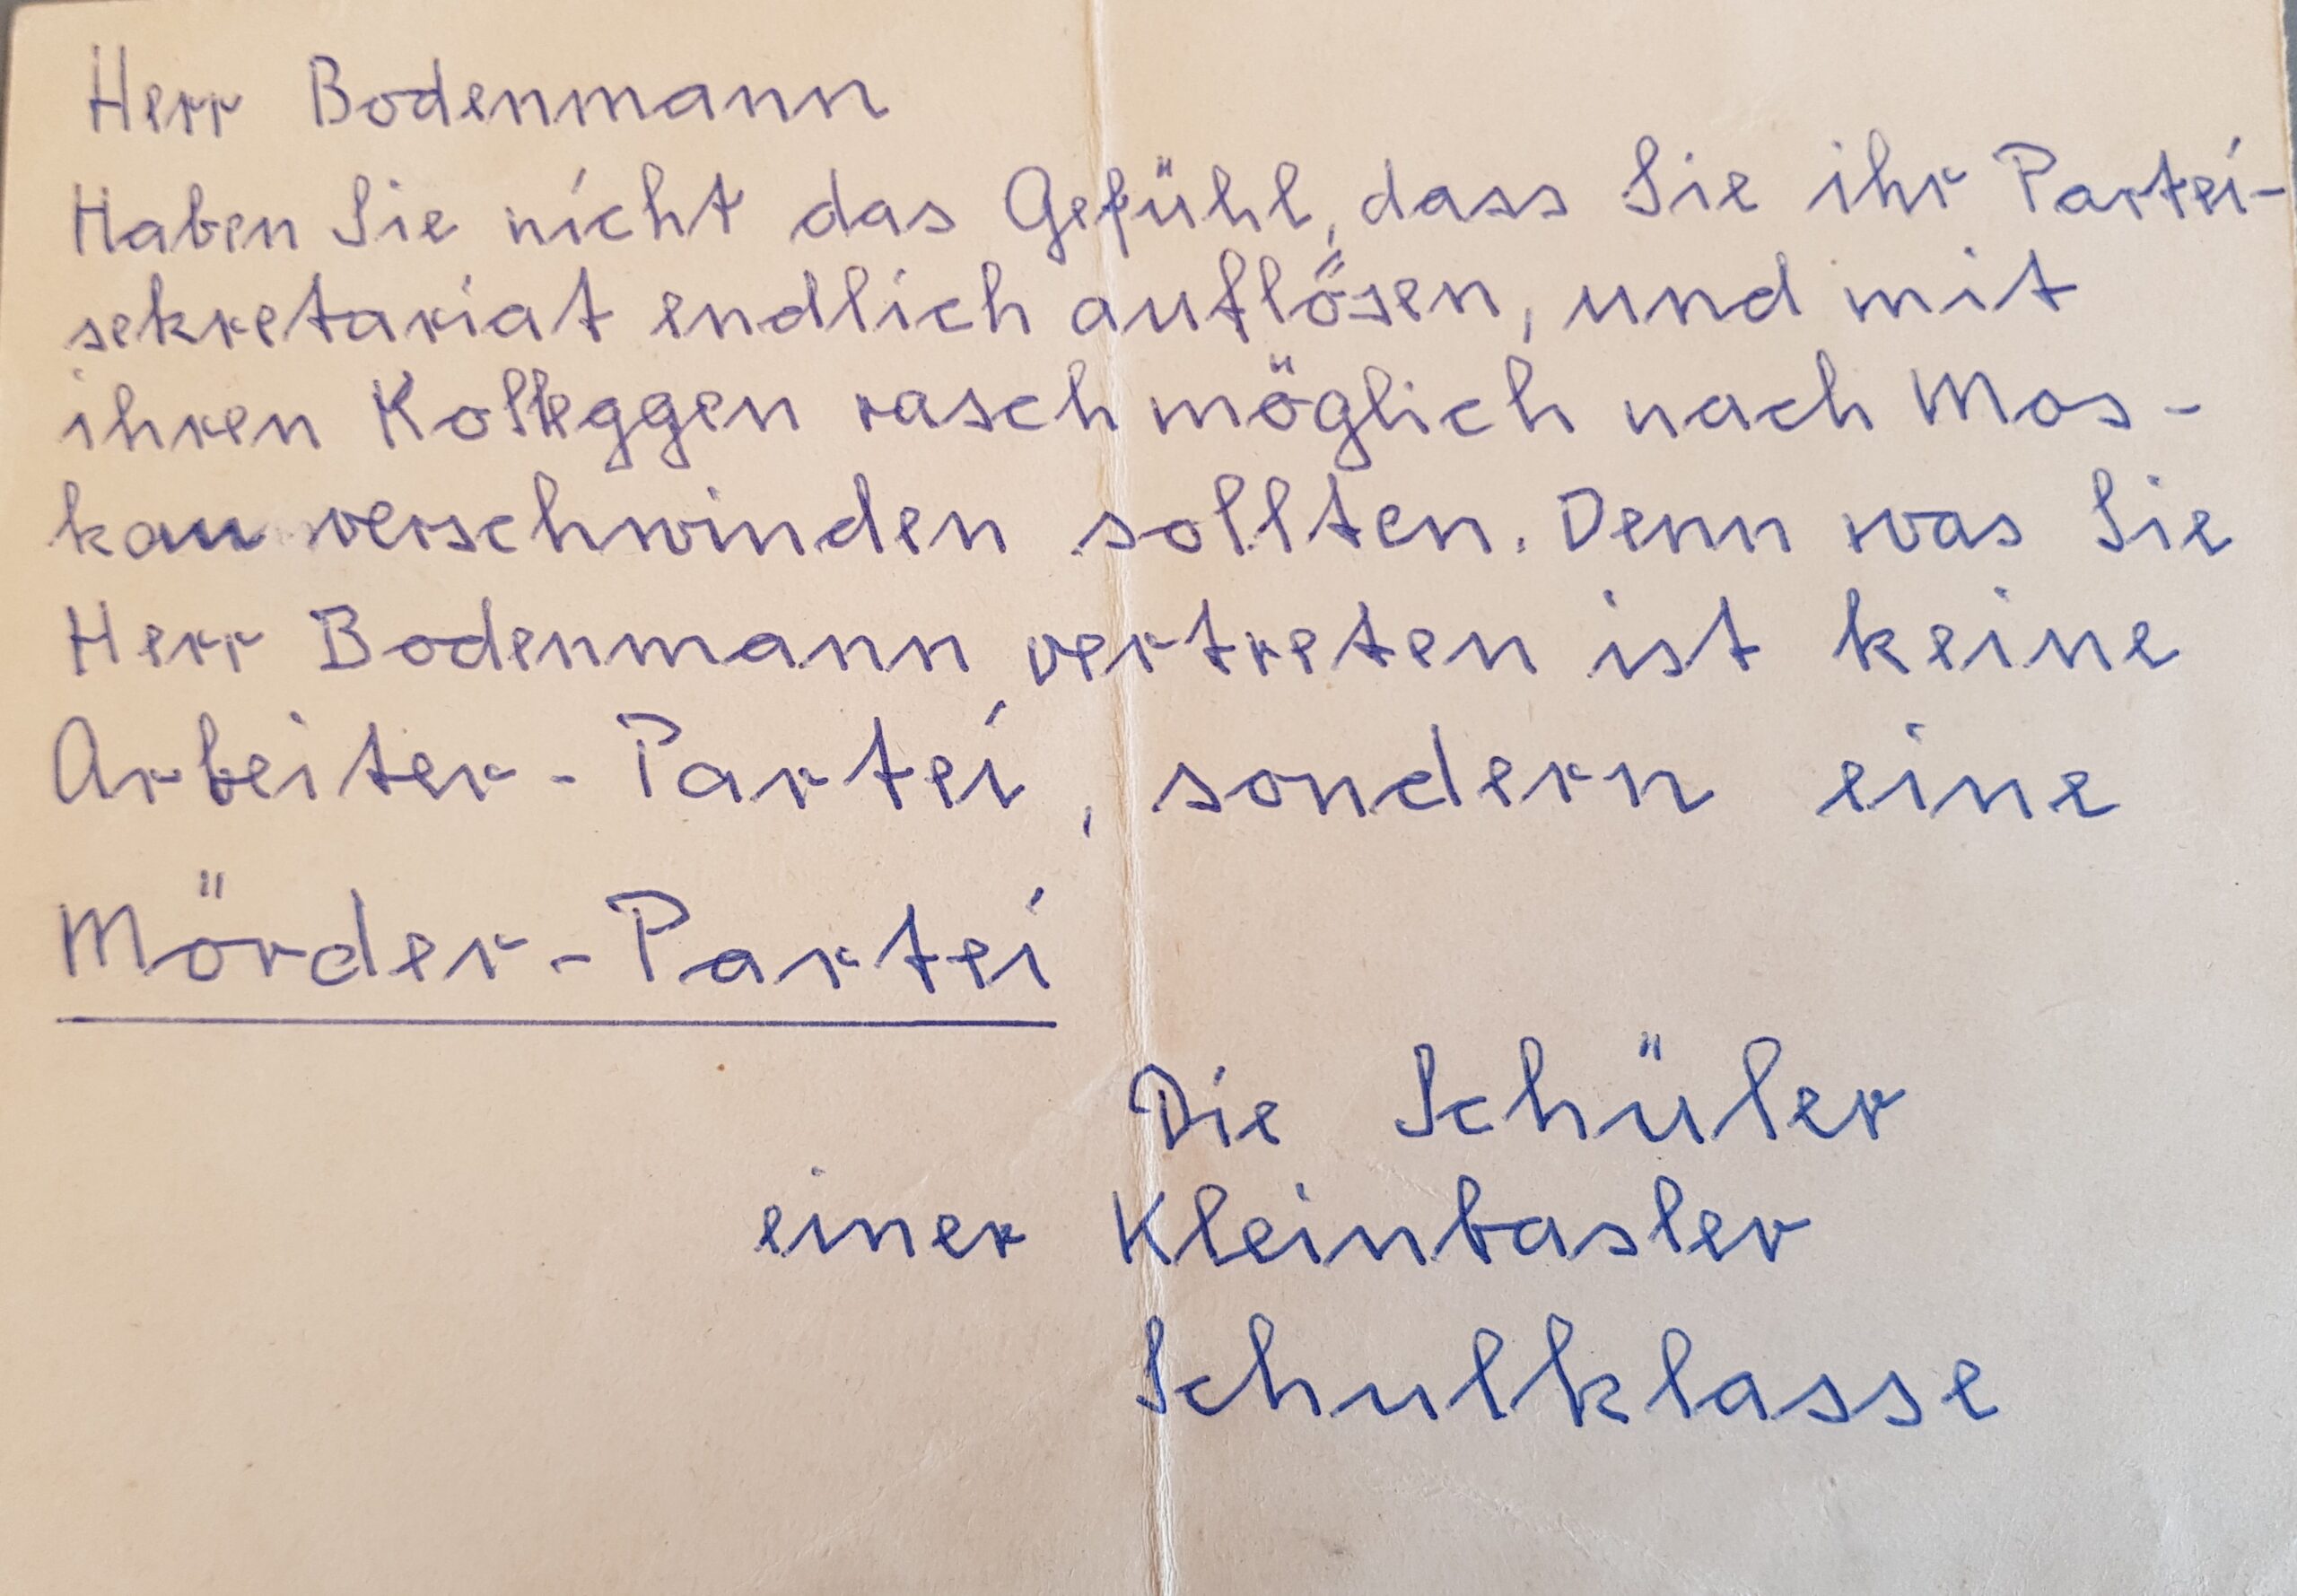 Herr Bodenmann
Haben Sie nicht das Gefühl, dass Sie ihr Partei-
sekretariat endlich auflösen, und mit
ihren Kolleggen rasch möglich nach Mos-
kau verschwinden sollten. Denn was Sie
Herr Bodenmann vertreten ist keine
Arbeiter-Partei, sondern eine
Mörder-Partei
Die Schüler
einer Kleinbasler
Schulklasse